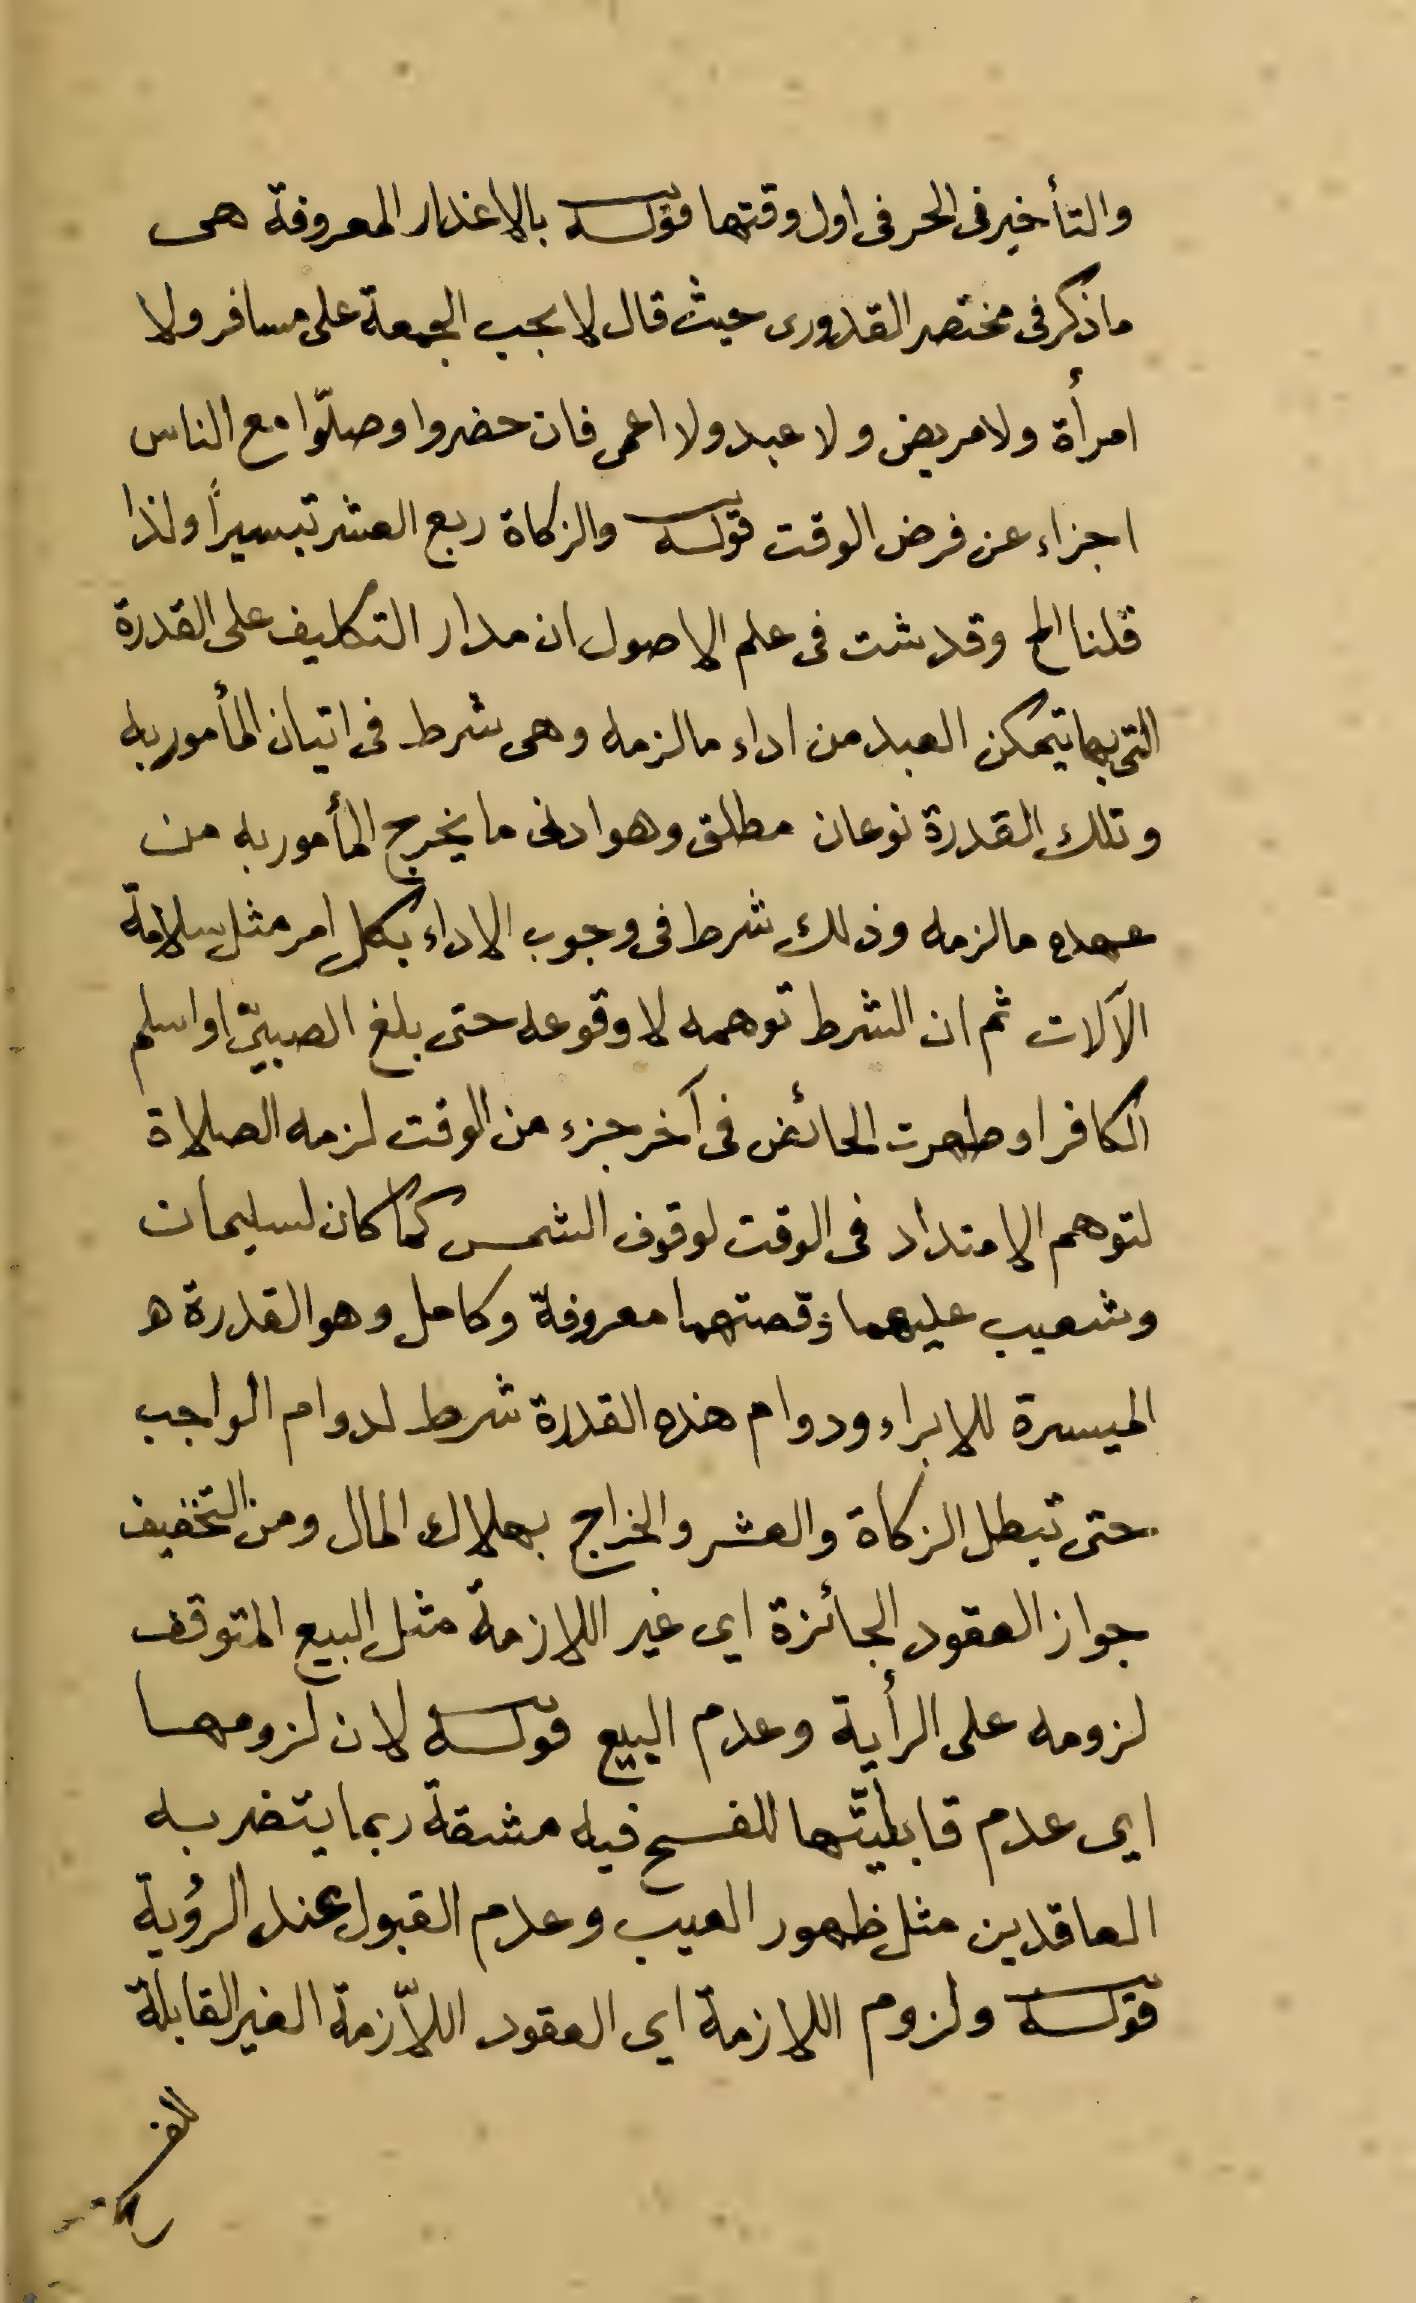 والتأخير فى الحر فى اول وقتها قوله بالاعذار المعروفة هى
ماذكر فى مختصر القدورى حيث قال لا يجب الجمعة على مسافر ولا
امرأة ولا مريض ولا عبد ولا اعمى فان حضروا وصلّوا مع الناس
اجزاء عن فرض الوقت قوله والزكاة ربع العشر تيسيرًا ولذا
قلنا الخ وقد شت فى علم الاصول ان مدار التكليف على القدرة
التى بها يتمكن العبد من اداء مالزمه وهى شرط فى اتيان المأمور به
وتلك القدرة نوعان مطلق وهو ادنى ما يخرج المأمور به من
عهده مالزمه وذلك شرط فى وجوب الاداء بكل امر مثل سلامة
الآلات ثم ان الشرط توهمه لا وقوعه حتى بلغ الصبىّ او اسلم
الكافر او طهرت الحائض فى آخر جزء من الوقت لزمه الصلاة
لتوهم الامتداد فى الوقت لوقوف الشمس كما كان لسليمان
وشعيب عليهما وقصتهما معروفة وكامل وهو القدرة ه
الميسرة للابراء ودوام هذه القدرة شرط لدوام الواجب
حتى تبطل الزكاة والعشر والخراج بهلاك المال ومن التخفيف
جواز العقود الجائزة اى غير اللازمة مثل البيع المتوقف
لزومه على الرأية وعدم البيع قوله لان لزومها
اى عدم قابليّتها للفسخ فيه مشقة ربما يتضر به
العاقدين مثل ظهور العيب وعدم القبول عند الرُوية
قوله ولزوم اللازمة اى العقود اللاّزمة الغير القابلة
للفسخ